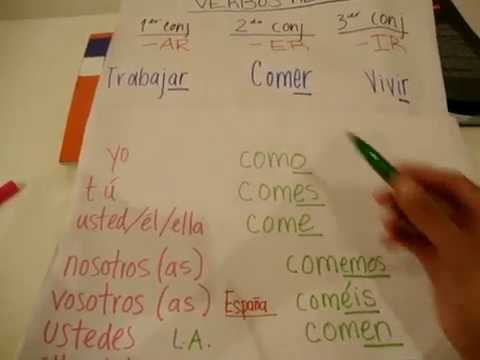 VERBOS
1er conj 2do conj 3er conj
-AR -ER -IR
Trabajar Comer Vivir
yo como
tú comes
usted/él/ella come
nosotros (as) comemos
vosotros (as) España coméis
ustedes L.A. comen